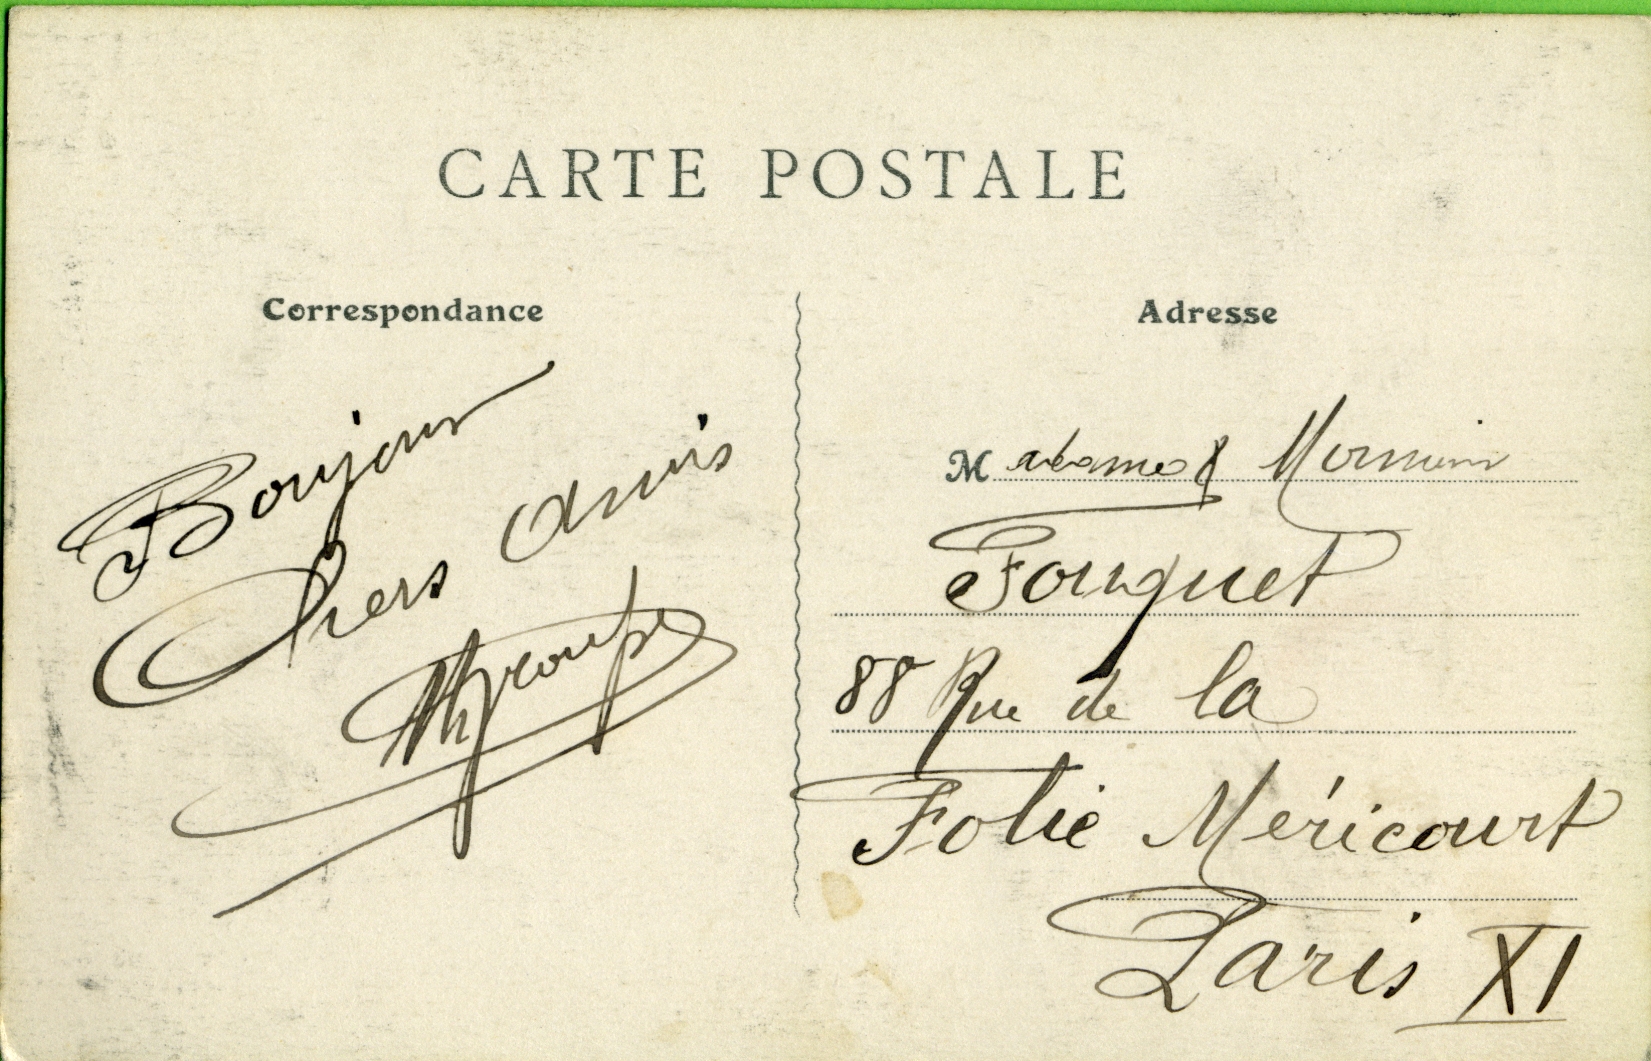 CARTE POSTALE
Correspondance
Adresse
Bonjour
Chers Amis
Madame &
Fouquet
88 Rue de la
Folie Méricourt
Paris XI